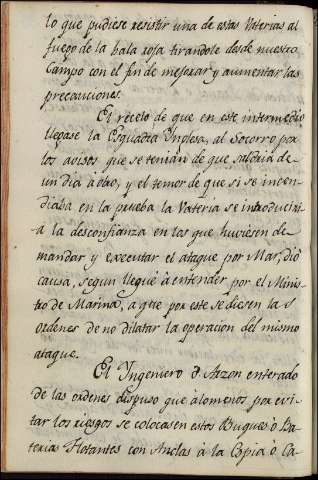 lo que pudiese resistir una de estas Vaterias al
fuego de la bala roja tirandole desde nuestro
Campo con el fin de mejorar y aumentar las
precauciones.
El recelo de que en este intermedio
llegase la Esquadra Ynglesa, al Socorro por
los avisos que se tenian de que saldria de
un dia à otro, y el temor de que si se incen
diaba en la prueba la Vateria se introducirìa
a la desconfianza en los que huviesen de
mandar y executar el ataque por Mar, diò
causa, segun lleguè à entender por el Minis
tro de Marina, a que por este se diesen las
ordenes de no dilatar la operacion del mismo
ataque.
El Yngeniero d Arzon enterado
de las ordenes dispuso que alomenos por evi
tar los riesgos se colocasen estos Buques ò Ba
terias Flotantes con Anclas à la Espia ò Ca